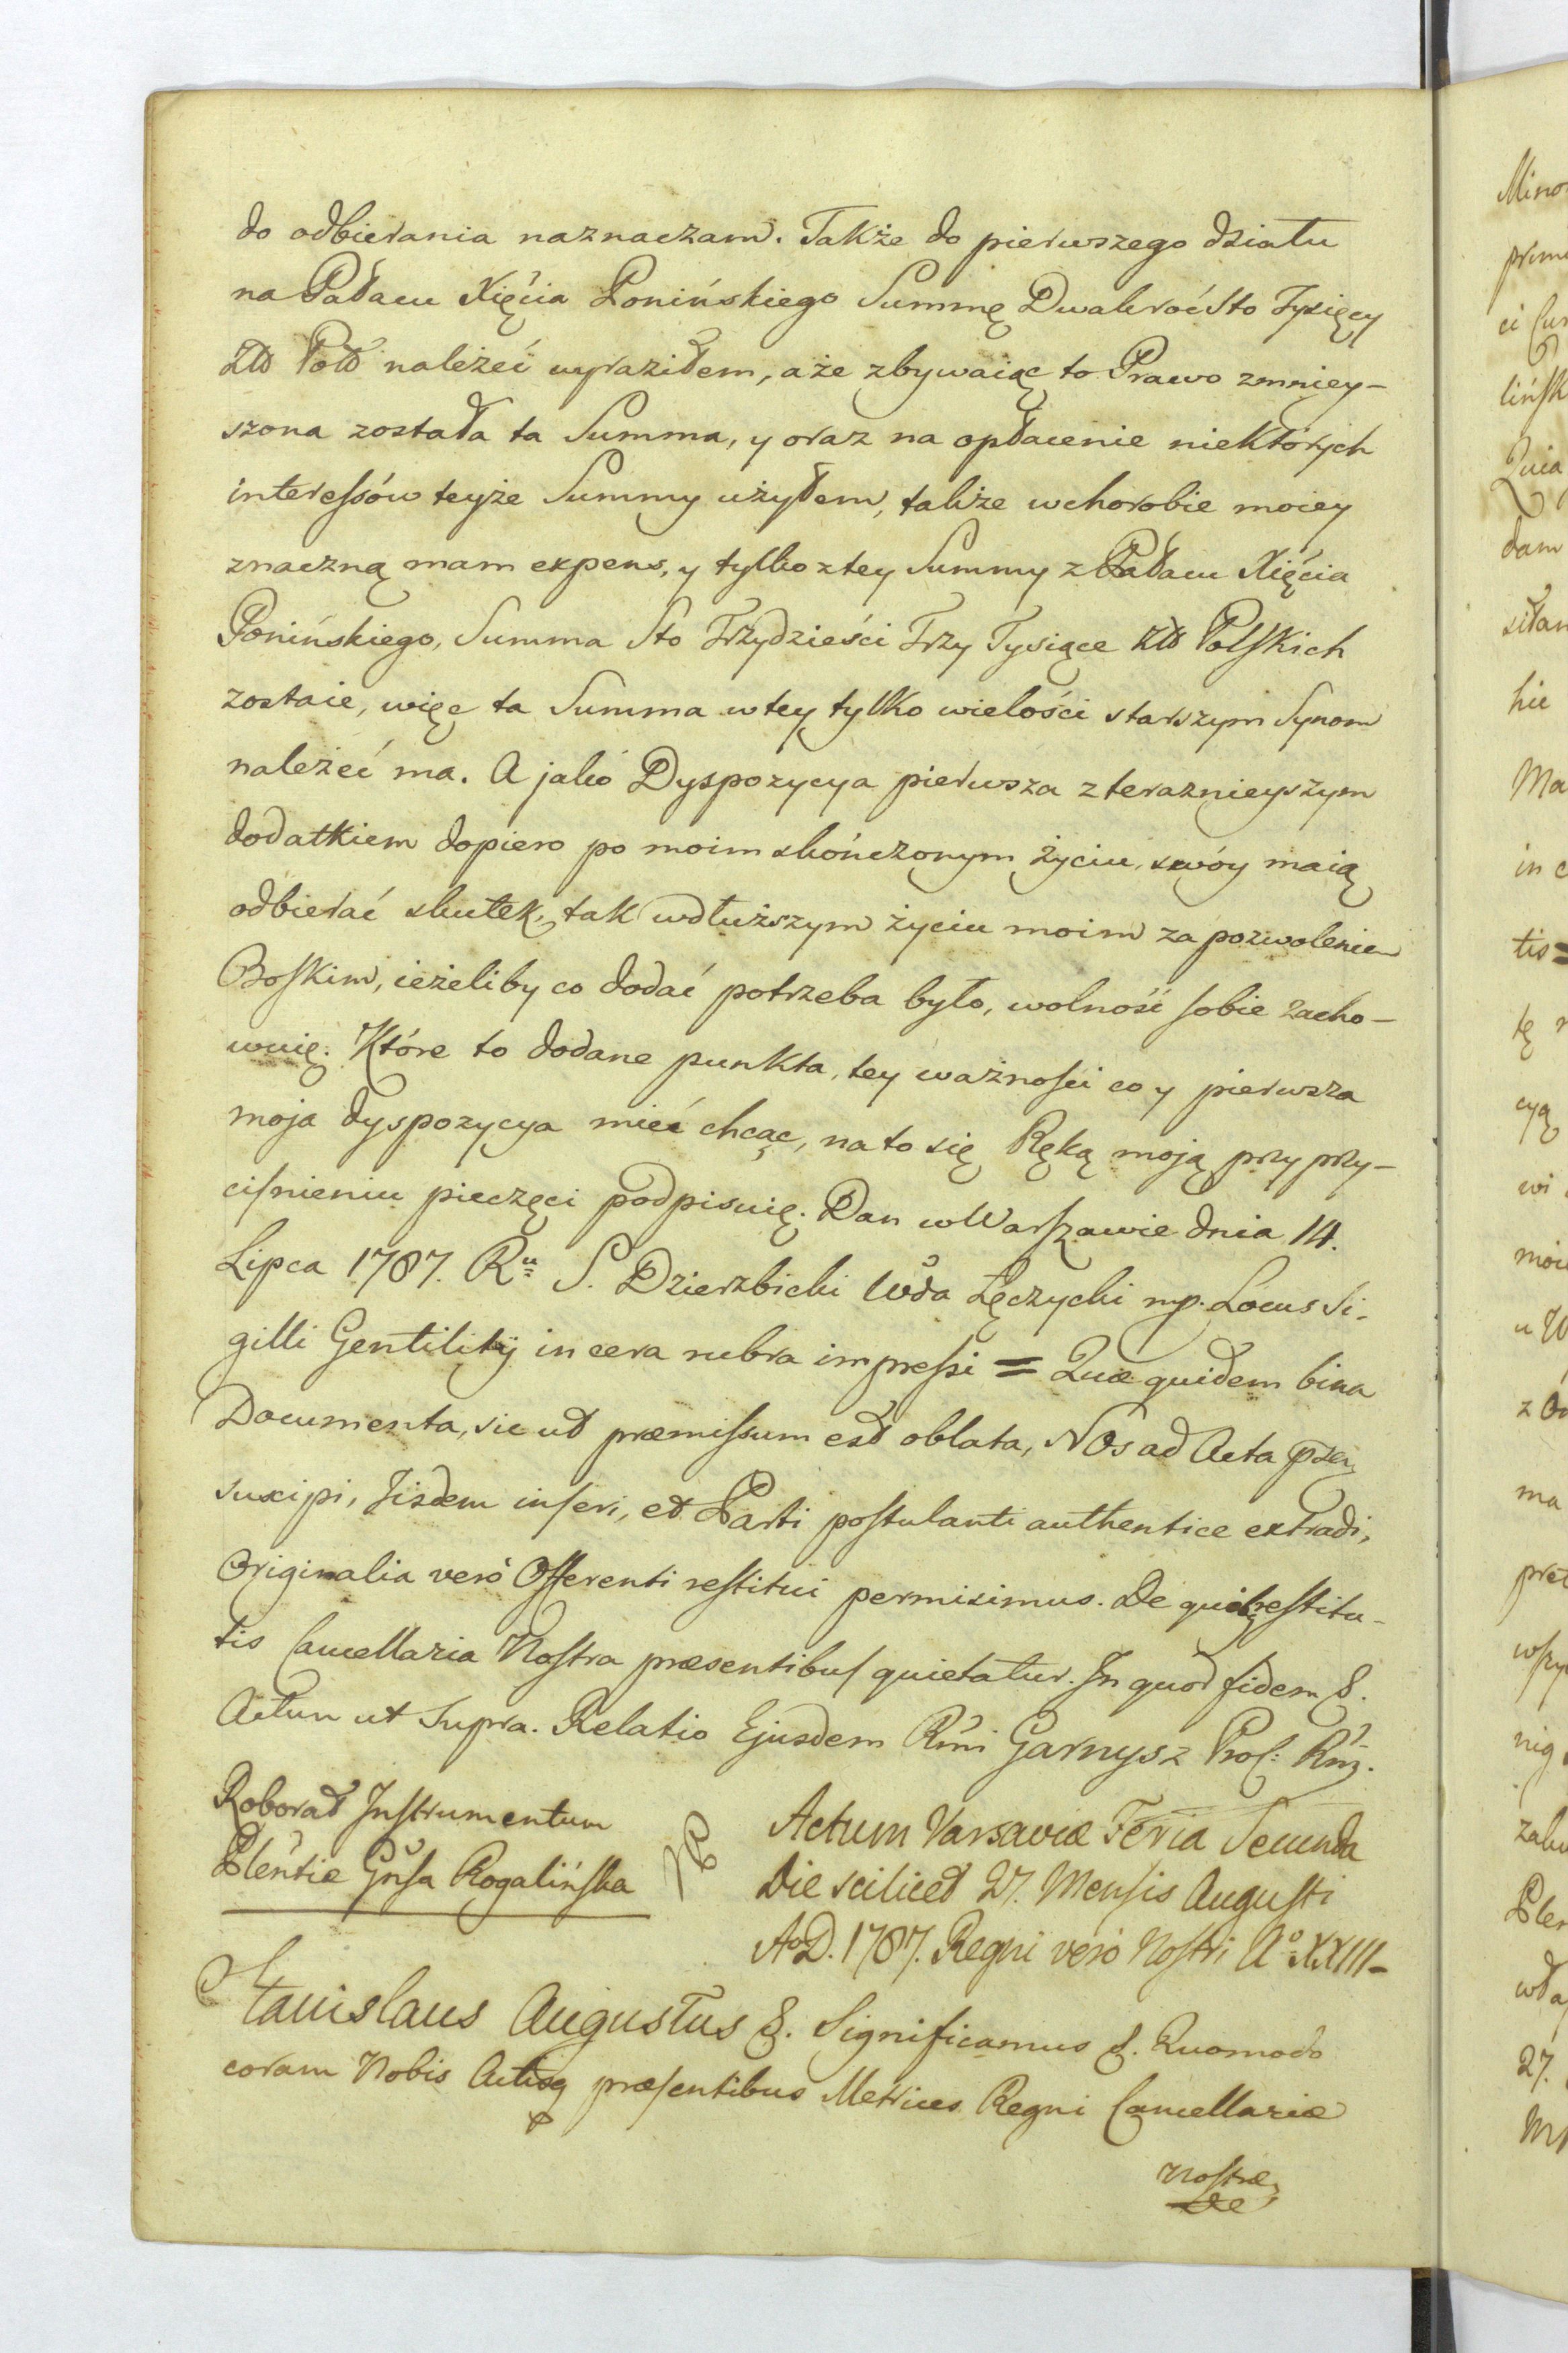 do odbierania naznaczam. Także do pierwszego działu
na Pałacu Xięcia Ponińskiego Summę Dwakroć Sto Tysięcy
Zł Pol należeć wyraziłem, a że zbywaiąc to Prawo zmniey-
szona została ta Summa, y oraz na opłacenie niektórych
interessów teyże Summy użyłem, także w chorobie moiey
znaczną mam expens, y tylko z tey Summy z Pałacu Xięcia
Ponińskiego, Summa Sto Trzydzieści Trzy Tysiące Zł Polskich
zostaie, więc ta Summa w tey tylko wielości starszym Synom
należeć ma. A jako Dyspozycya pierwsza z teraznieyszym
dodatkiem dopiero po moim skończonym życiu, swóy maią
odbierać skutek, tak w dłuższym życiu moim za pozwoleniem
Boskim, ieżeliby co dodać potrzeba było, wolność sobie zacho-
wuię. Które to dodane punkta, tey ważności co y pierwsza
moja dyspozycya mieć chcąc, na to się Ręką moją przy przy-
ciśnieniu pieczęci podpisuię. Dan w Warszawie dnia 14.
Lipca 1787. Ru S. Dzierzbicki Wda Łęczycki mp. Locus Si-
gilli Gentilitij in cera rubra impressi = Quæ quidem bina
Documenta, sic ut præmissum est oblata, Nos ad Acta
suscipi, Jisdem inseri, et Parti postulanti authentice extradi,
Originalia verò Offerenti restitui permisimus. De restitu-
tis Cancellaria Nostra præsentibus quietatur. In quor fidem &.
Actum ut supra. Relatio Ejusdem Rmi Garnysz Pro: Rni.
Roborat Instrumentum
Plentiæ Gnsa Rogalińska
Actum Varsaviæ Feria Secunda
Die scilicet 27. Mensis Augusti
Ao D. 1787. Regni verò Nostri Ao XXIII-
Stanislaus Augustus &. Significamus &. Quomodo
coram Nobis Actisq præsentibus Metrices Regni Cancellariæ
Nostræ